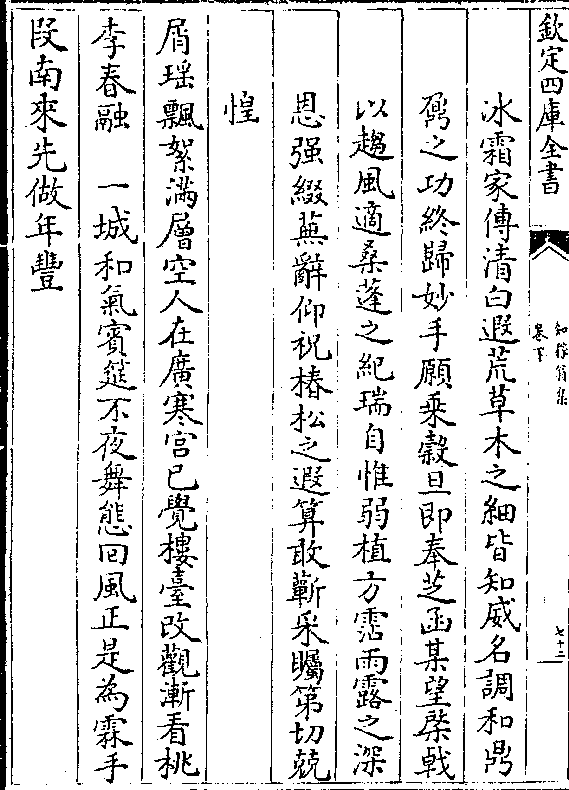 欽定四庫全書
知稼翁集
卷下
七十二
冰霜家傳清白遐荒草木之細皆知威名調和鼎
鼐之功終歸妙手願乗穀旦即奉芝函某望棨㦸
以趨風適桑蓬之紀瑞自惟弱植方霑雨露之深
恩强綴蕪辭仰祝椿松之遐算敢蘄采矚第切兢
惶
屑瑶飄絮滿層空人在廣寒宫已覺樓臺改觀漸看桃
李春融　一城和氣賓筵不夜舞態回風正是為霖手
段南來先做年豐